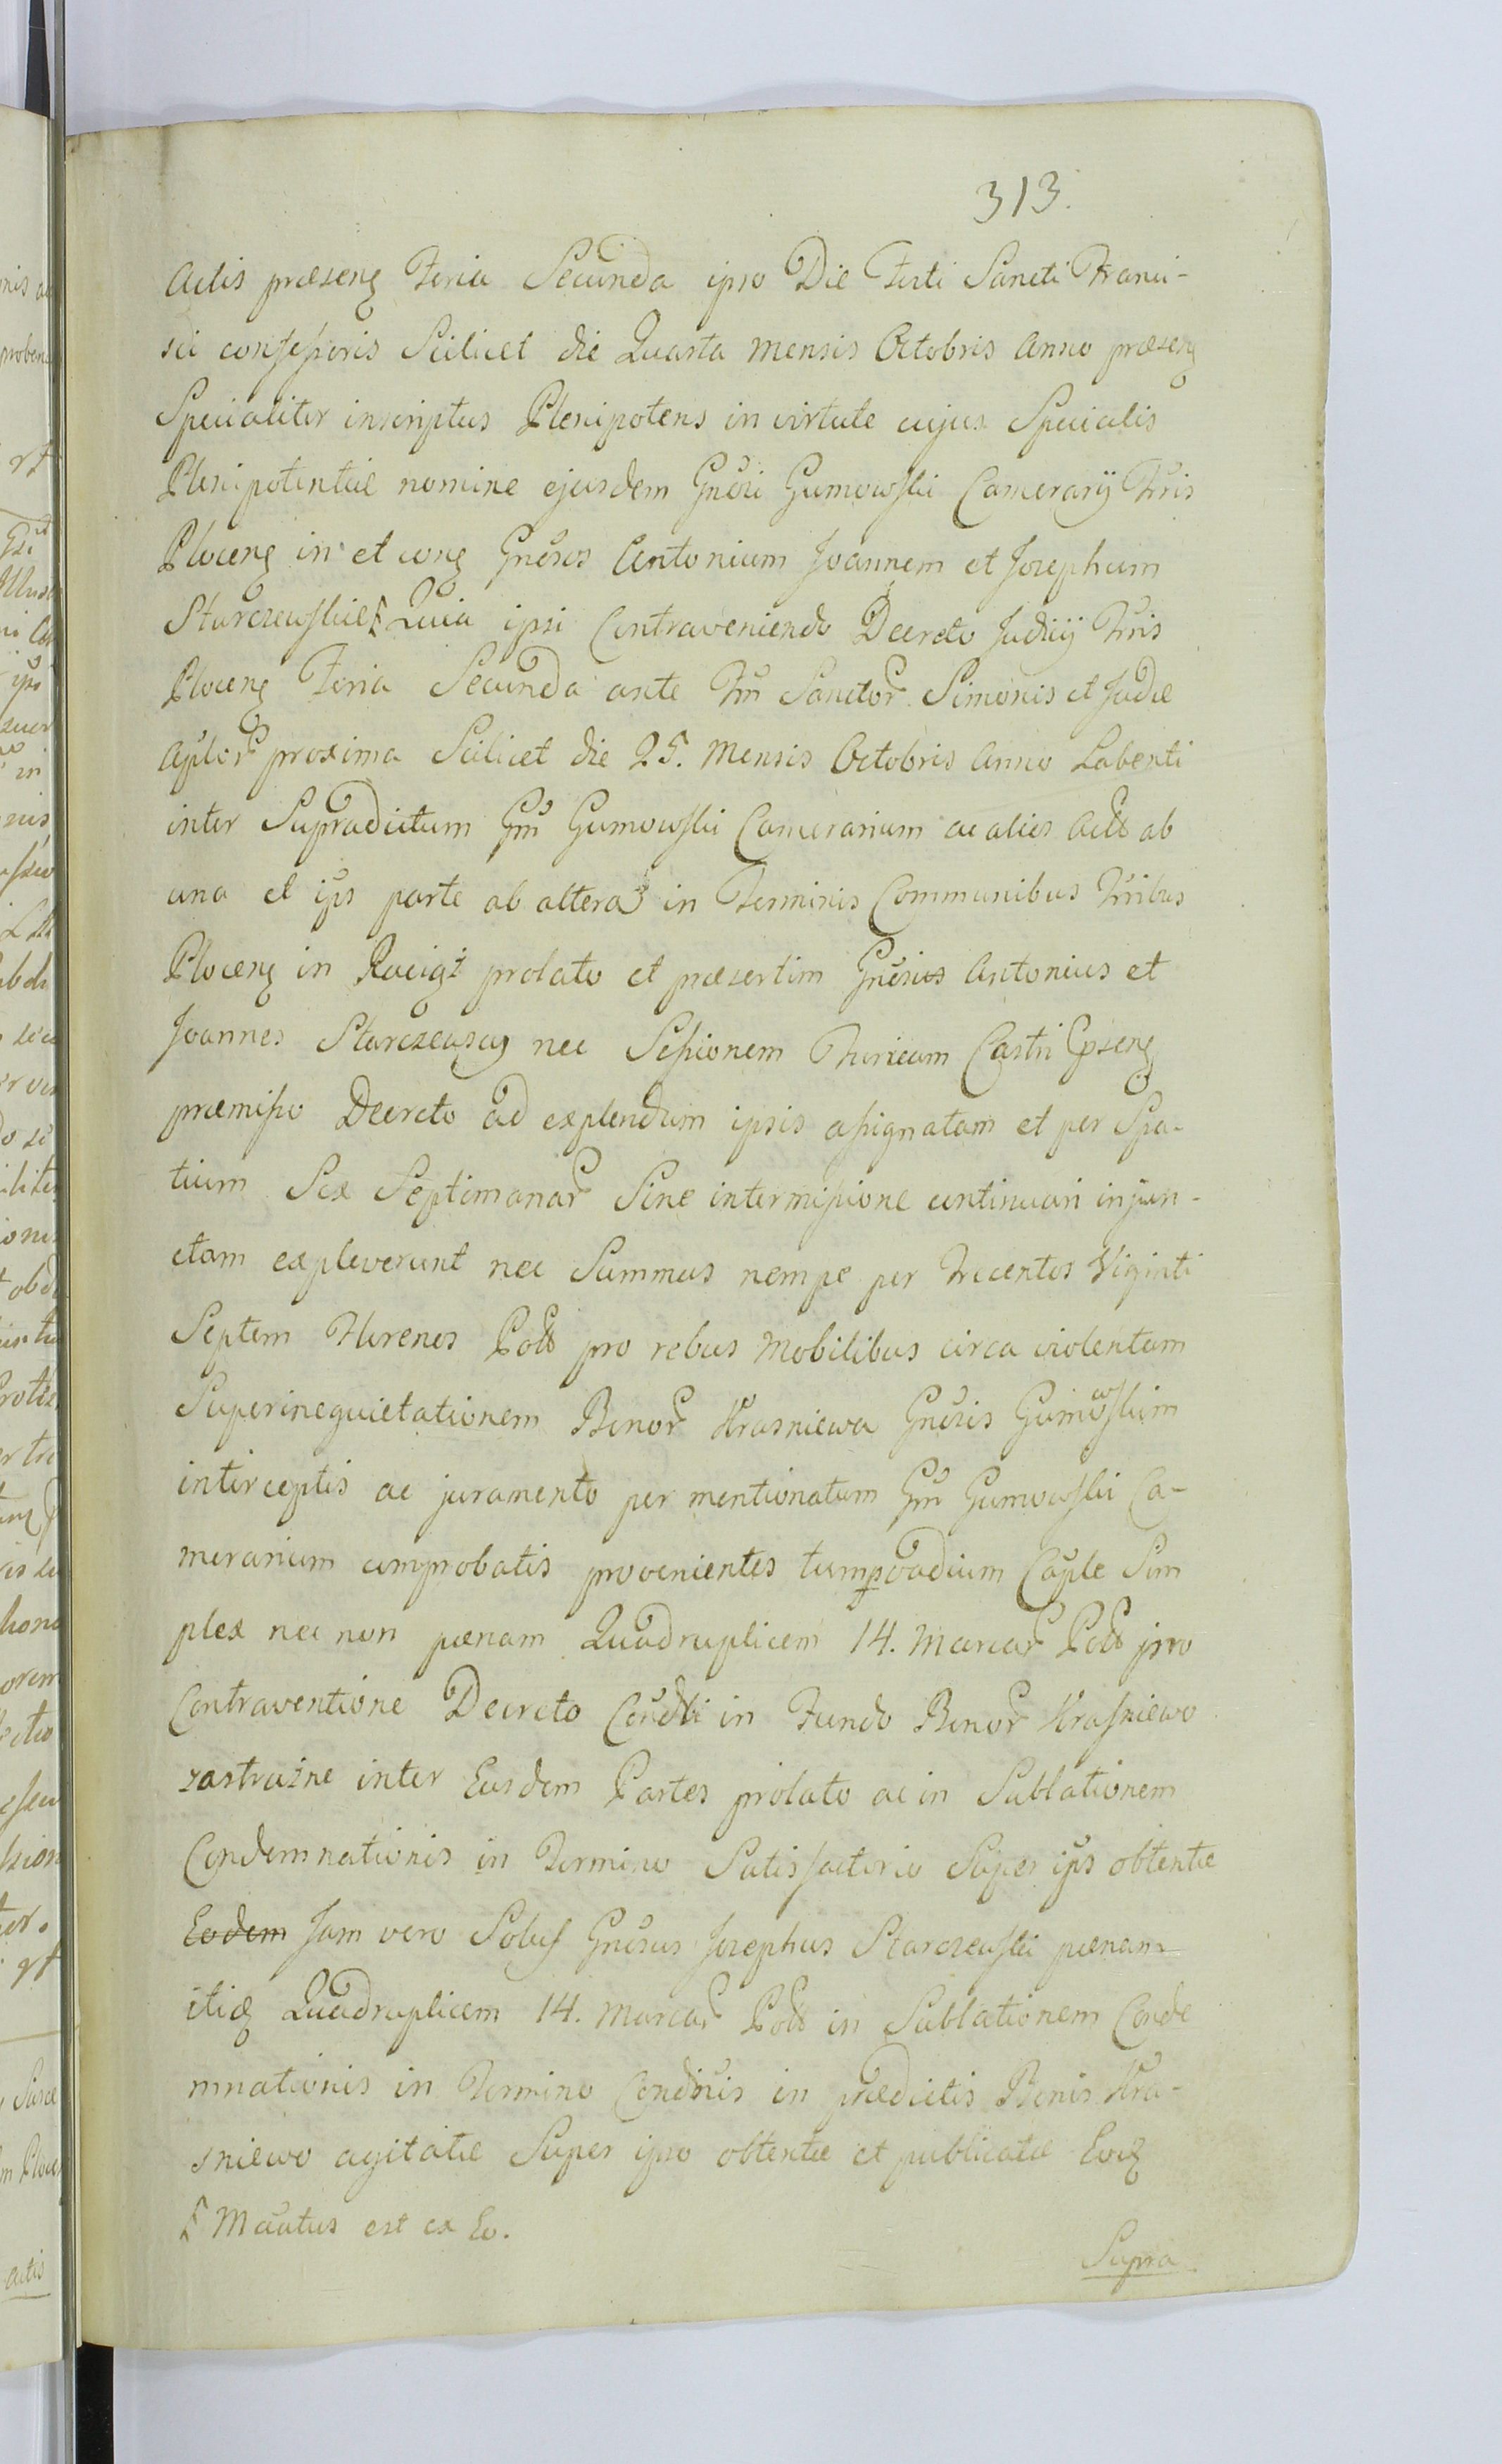 313.
Actis præseng Feria Secunda ipso Die Festi Sancti Franci-
sci confessoris Scilicet die Quarta mensis Octobris Anno præseng
Specialiter inscriptus Plenipotens in virtute cujus Specialis
Plenipotentiæ nomine ejusdem Gnosi Gumowski Camerarÿ Tris
Ploceng in et cong Gnosos Antonium Joannem et Josephum
Starczewskie Quia ipsi Contraveniendo Decreto Judicÿ Tris
Ploceng Feria Secunda ante Fm Sanctor Simonis et Judæ
Aplor proxima Scilicet die 25. Mensis Octobris Anno Labenti
inter Supradictum Gm Gumowski Camerarium ac alios Actt ab
una et ips parte ab altera in Terminis Communibus Tribus
Ploceng in Raciąż prolato et præsertim Gnosus Antonius et
Joannes Starczewscy nec Sessionem Turream Castri
præmisso Decreto ad explendum ipsis assignatam et per Spa-
tium Sex Septimanar Sine intermissione continuari injun-
ctam expleverunt nec Summas nempe per Trecentos Viginti
Septem Florenos Poll pro rebus Mobilibus circa violentam
Superinequietationem Bonor Krasniewa Gnosis Gumowskim
interceptis ac juramento per mentionatum Gm Gumowski Ca-
merarium comprobatis provenientes tum vadium Caple Sim
plex nec non pænam Quadruplicem 14. Marcar Poll pro
Contraventione Decreto Condli in Fundo Bonor Krasniewo
zastrużne inter Easdem Partes prolato ac in Sublationem
Condemnationis in Termino Satisfactorio Super ips obtentæ
Eodem Jam vero Solus Gnosus Josephus Starczewski pænam
itidq Quadruplicem 14. Marcar Poll in Sublationem Conde
mnationis in Termino Condnis in prædictis Bonis Kra-
sniewo agitatæ Super ipso obtentæ et publicatæ Eodq
Mcautus est ex Eo.
Supra